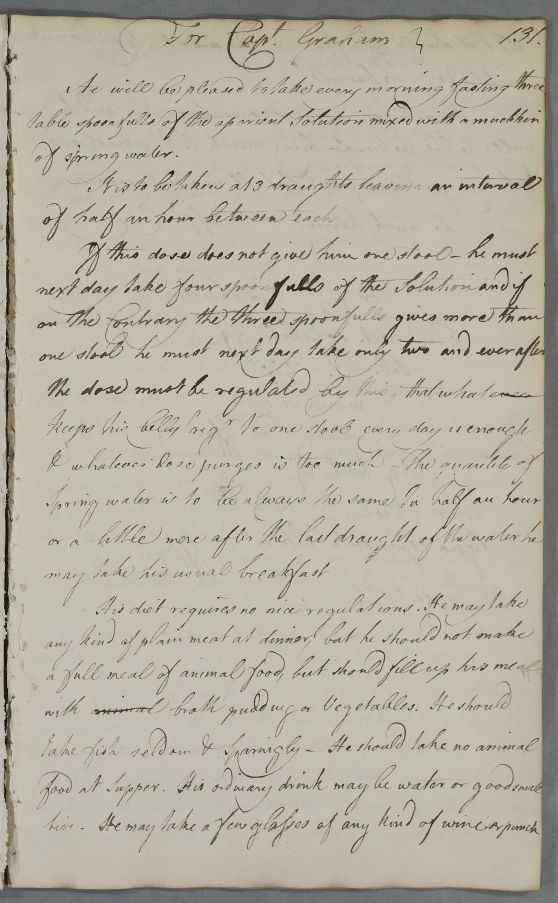 For Capt. Graham 131.
He will be pleased to take every morning fasting three
table spoonfulls of the aperient Solution mixed with a mutchkin
of spring water.
It is to be taken at 3 draughts leaving an interval
of half an hour between each
If this dose does not give him one stool – he must
next day take four spoonfulls of the Solution and if
on the Contrary the three spoonfulls gives more than
one stool he must next day take only two and ever after
the dose must be regulated by this, that what
keeps his belly regr to one stool every day is enough
& whatever dose purges is too much – The quantity of
Spring water is to be always the same In half an hour
or a little more after the last draught of the water he
may take his usual breakfast
His diet requires no nice regulations. He may take
any kind of plain meat at dinner, but he should not make
a full meal of animal food, but should fill up his meal
with animal broth pudding or Vegetables. He should
take fish seldom & Sparingly – He should take no animal
food at Supper. His ordinary drink may be water or good small
beer. He may take a few glasses of any kind of wine or punch